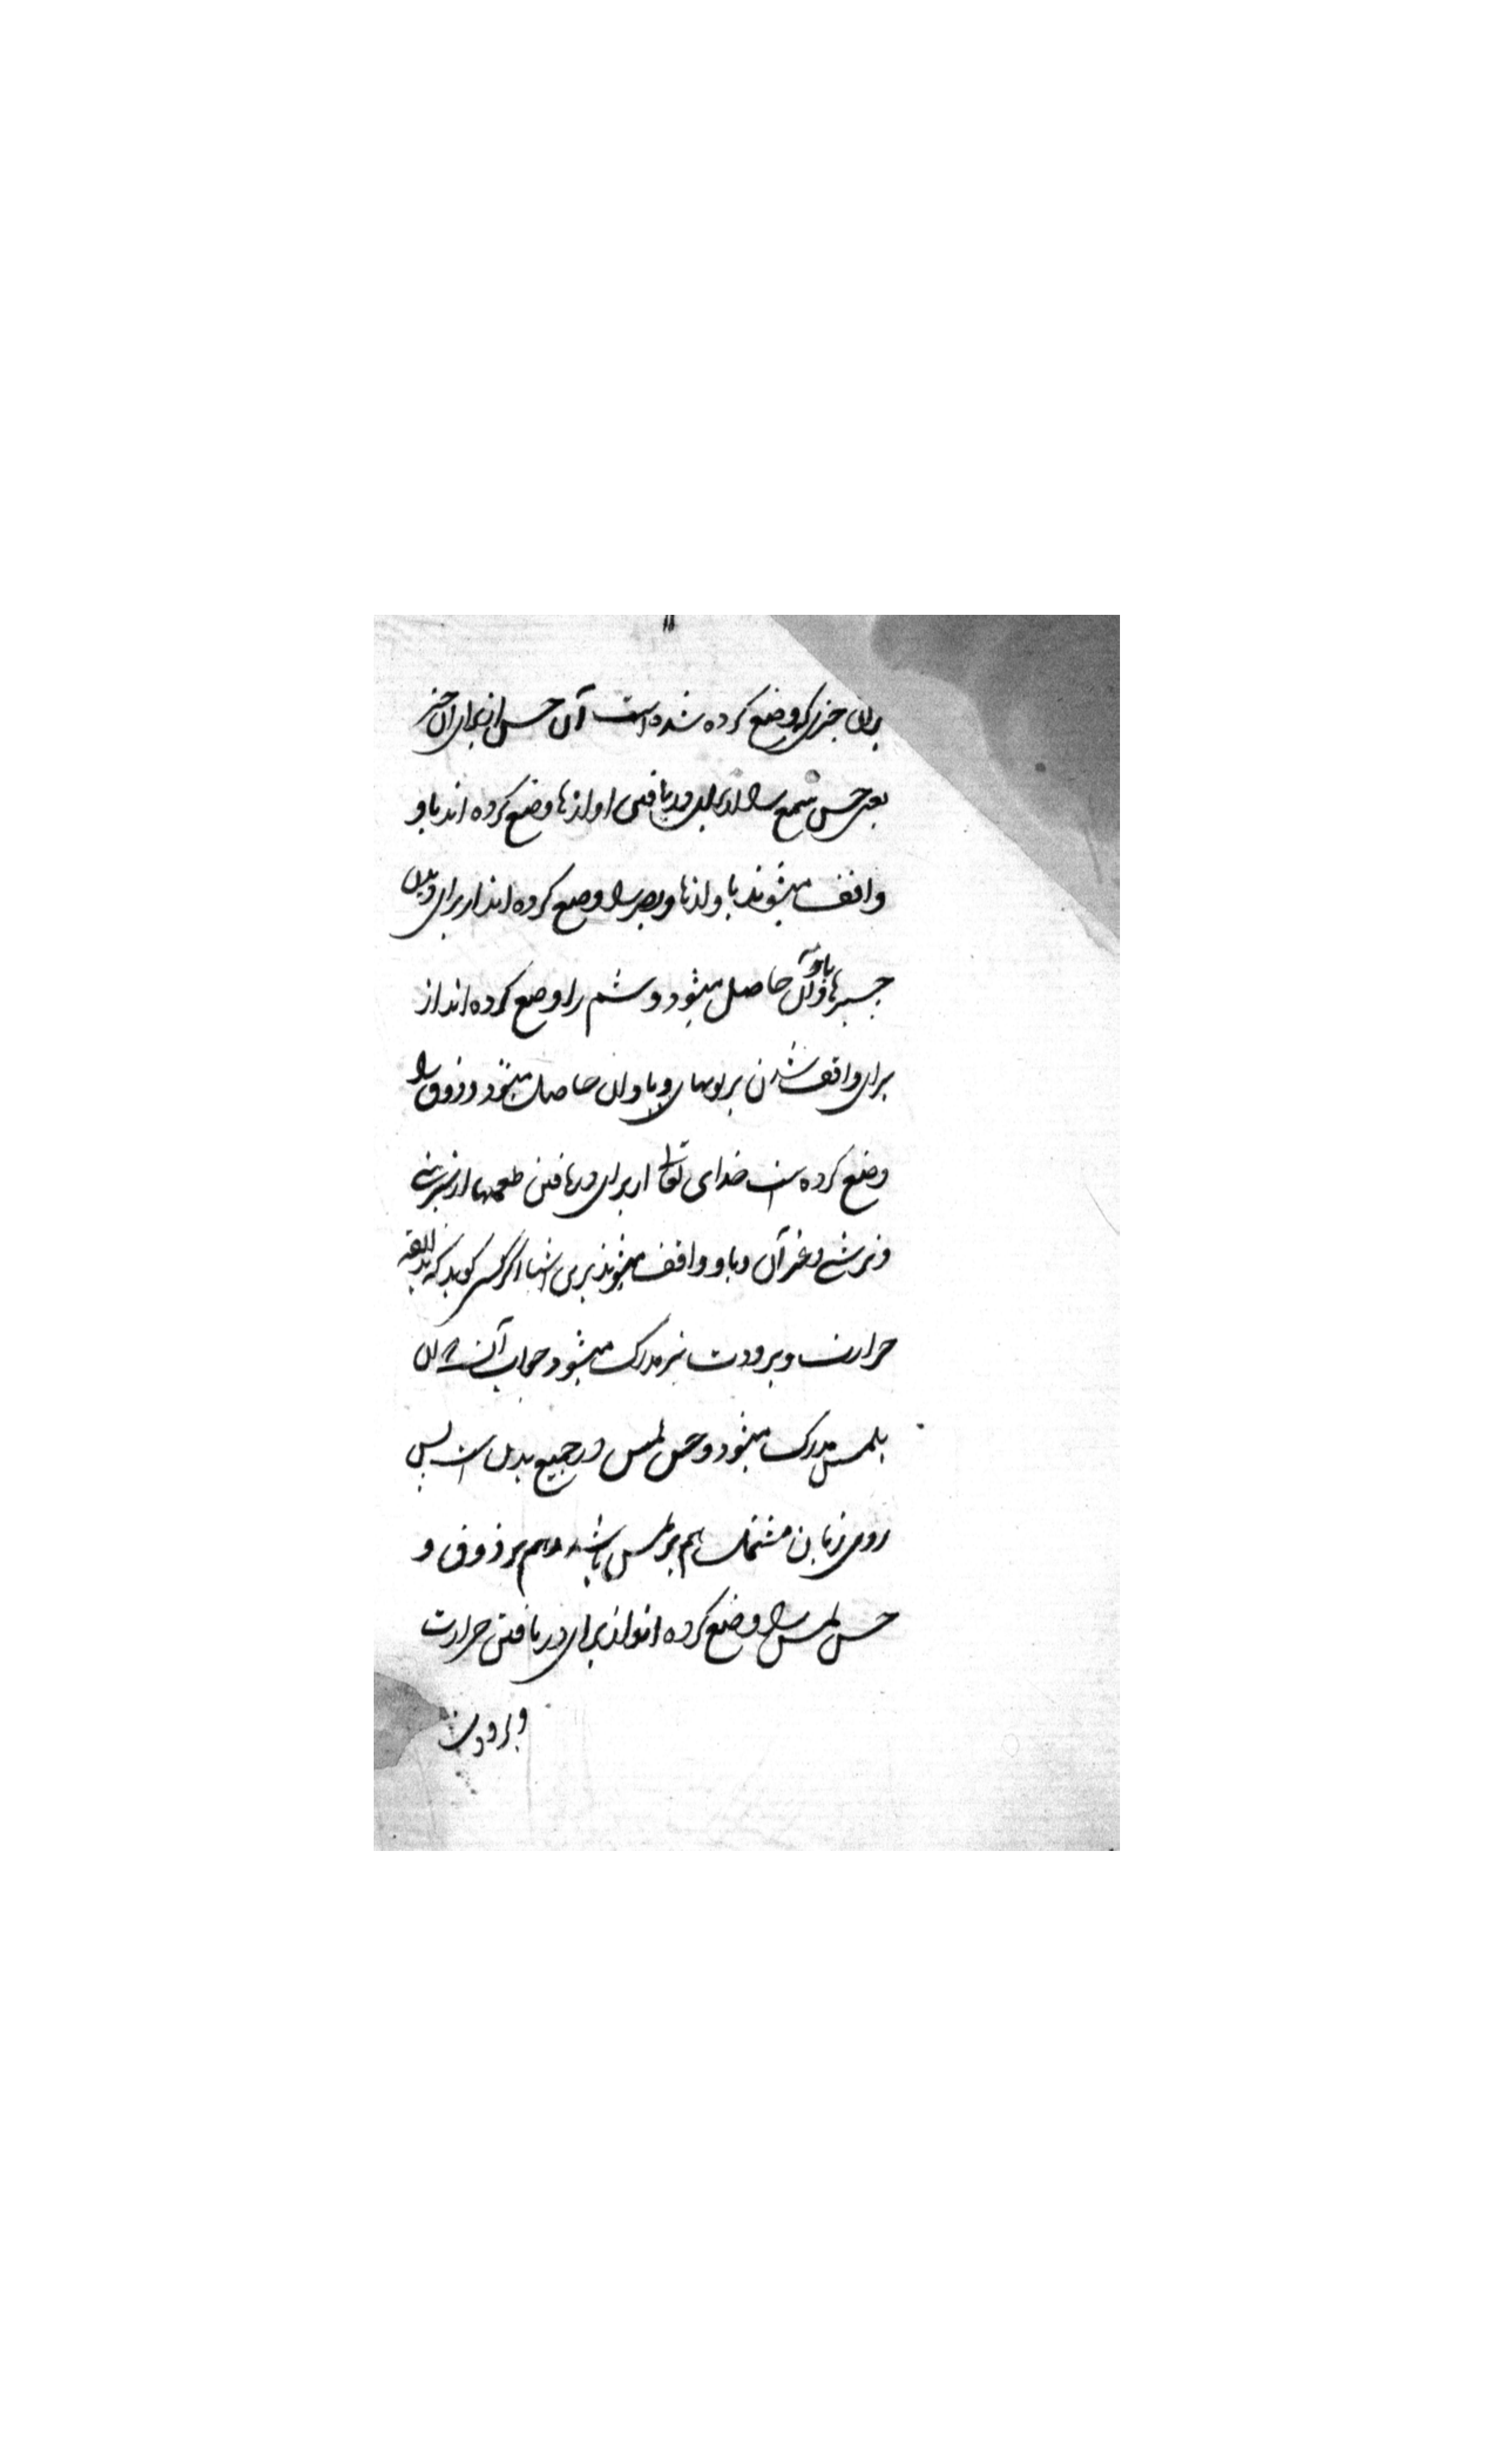 بران چیزی که وضع کرده شده است آن حس از برای آن چیز
یعنی حس سمع را از برای دریافتن اوازها وضع کرده اند باو
واقف میشوند باوازها و بصر را وضع کرده اند از برای دیدن
چیزها و باو آن حاصل میشود و شم را وضع کرده اند از
برای واقف شدن بر بویها و باو آن حاصل میشود و ذوق را
وضع کرده است خدای تعالی از برای دریافتن طعمها از شیرینی
و ترشی و غیر آن و باو واقف میشوند برین اشیا اگر کسی گوید که بذائقه
حرارت و برودت نیز مدرک میشود جواب آنست که آن
بلمس مدرک میشود و حس لمس در جمیع بدن است پس
روی زبان مشتمل هم بر لمس باشد و هم بر ذوق و
حس لمس را وضع کرده اند از برای دریافتن حرارت
و برودت